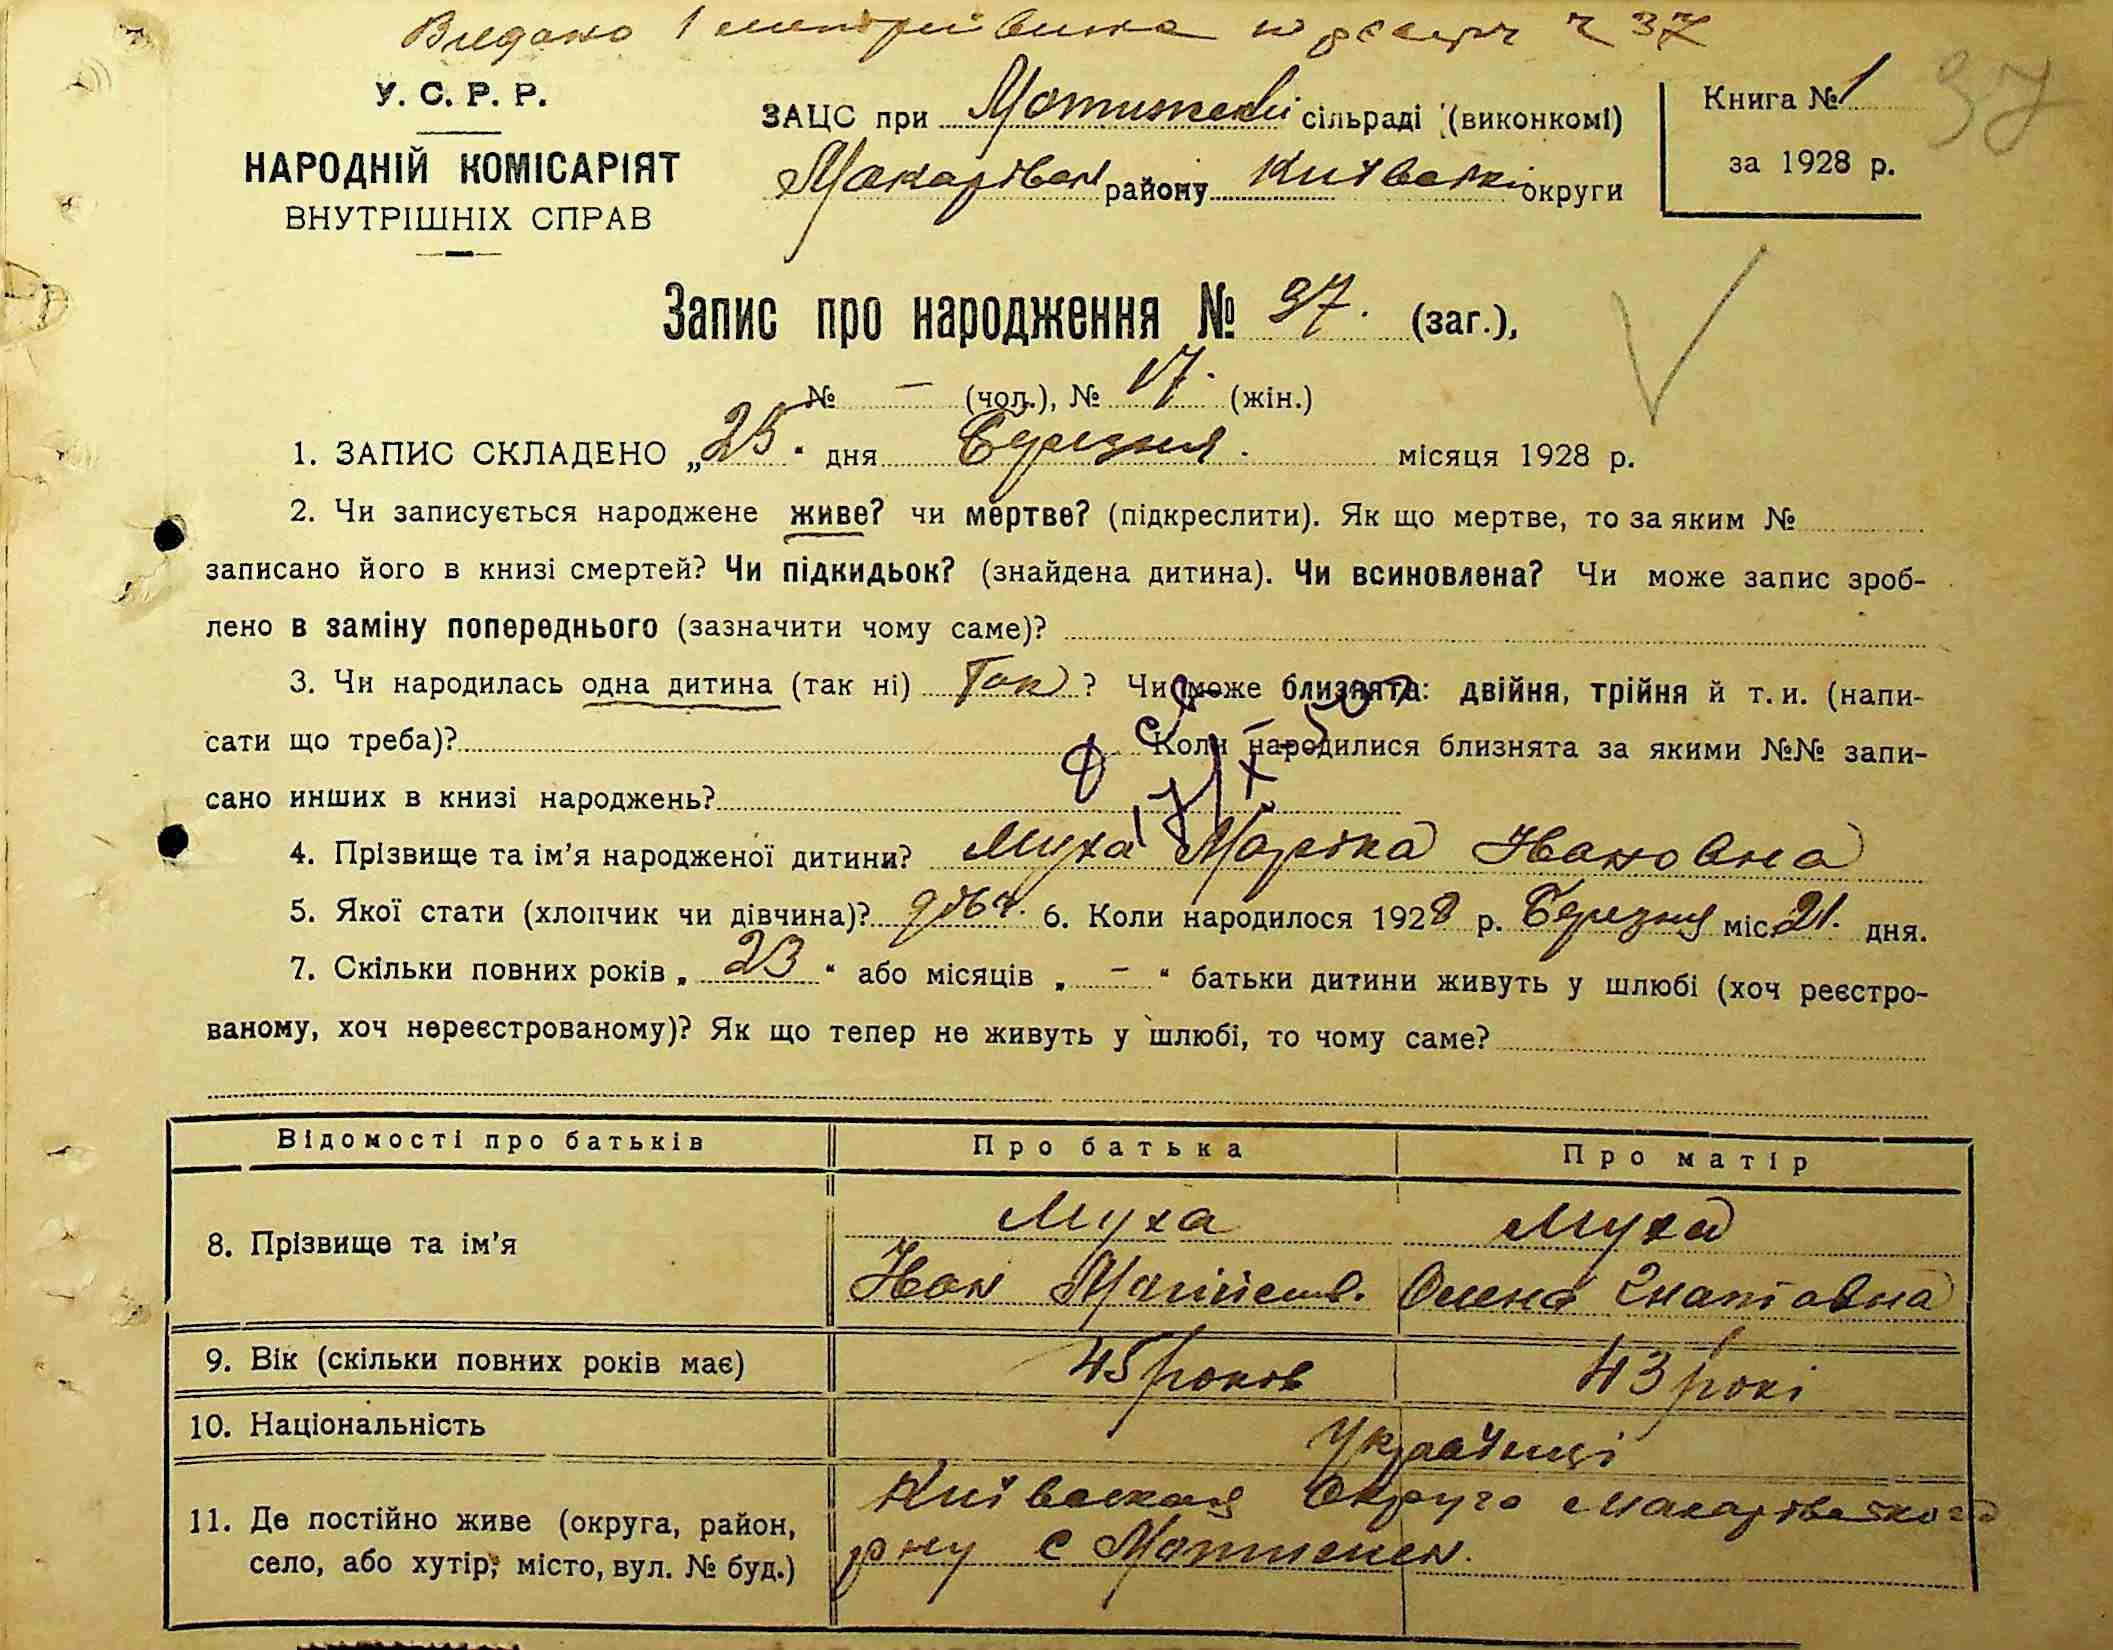 Видано 1 метрич виписка по реєстр ч 37
37
У. С. Р. Р.
НАРОДНІЙ КОМІСАРІЯТ
ВНУТРІШНІХ СПРАВ
ЗАЦС при Мотижескі сільраді (виконкомі)
Макарівск району Київські округи
Книга № 1
за 1928 р.
Запис про народження № 37. (заг.),
№ — (чол.), № 17. (жін.)
1. ЗАПИС СКЛАДЕНО „25." дня Березня. місяця 1928 р.
2. Чи записується народжене живе? чи мертве? (підкреслити). Як що мертве, то за яким №
записано його в книзі смертей? Чи підкидьок? (знайдена дитина). Чи всиновлена? Чи може запис зроб-
лено в заміну попереднього (зазначити чому саме)?
3. Чи народилась одна дитина (так ні) Так? Чи може близнята: двійня, трійня й т. и. (напи-
сати що треба)? Коли народилися близнята за якими №№ запи-
сано инших в книзі народжень?
4. Прізвище та ім'я народженої дитини? Муха Марійка Івановна
5. Якої стати (хлопчик чи дівчина)? дівч. 6. Коли народилося 1928 р. Березня міс. 21. дня.
7. Скільки повних років „23" або місяців „—" батьки дитини живуть у шлюбі (хоч реєстро-
ваному, хоч нереєстрованому)? Як що тепер не живуть у шлюбі, то чому саме?
Відомості про батьків Про батька Про матір
8. Прізвище та ім'я Муха Муха
Іван Олена Гнатовна
9. Вік (скільки повних років має) 45 років 43 рокі
10. Національність Українці
11. Де постійно живе (округа, район, село, або хутір; місто, вул. № буд.) Київская Округа Макарівского
рну с